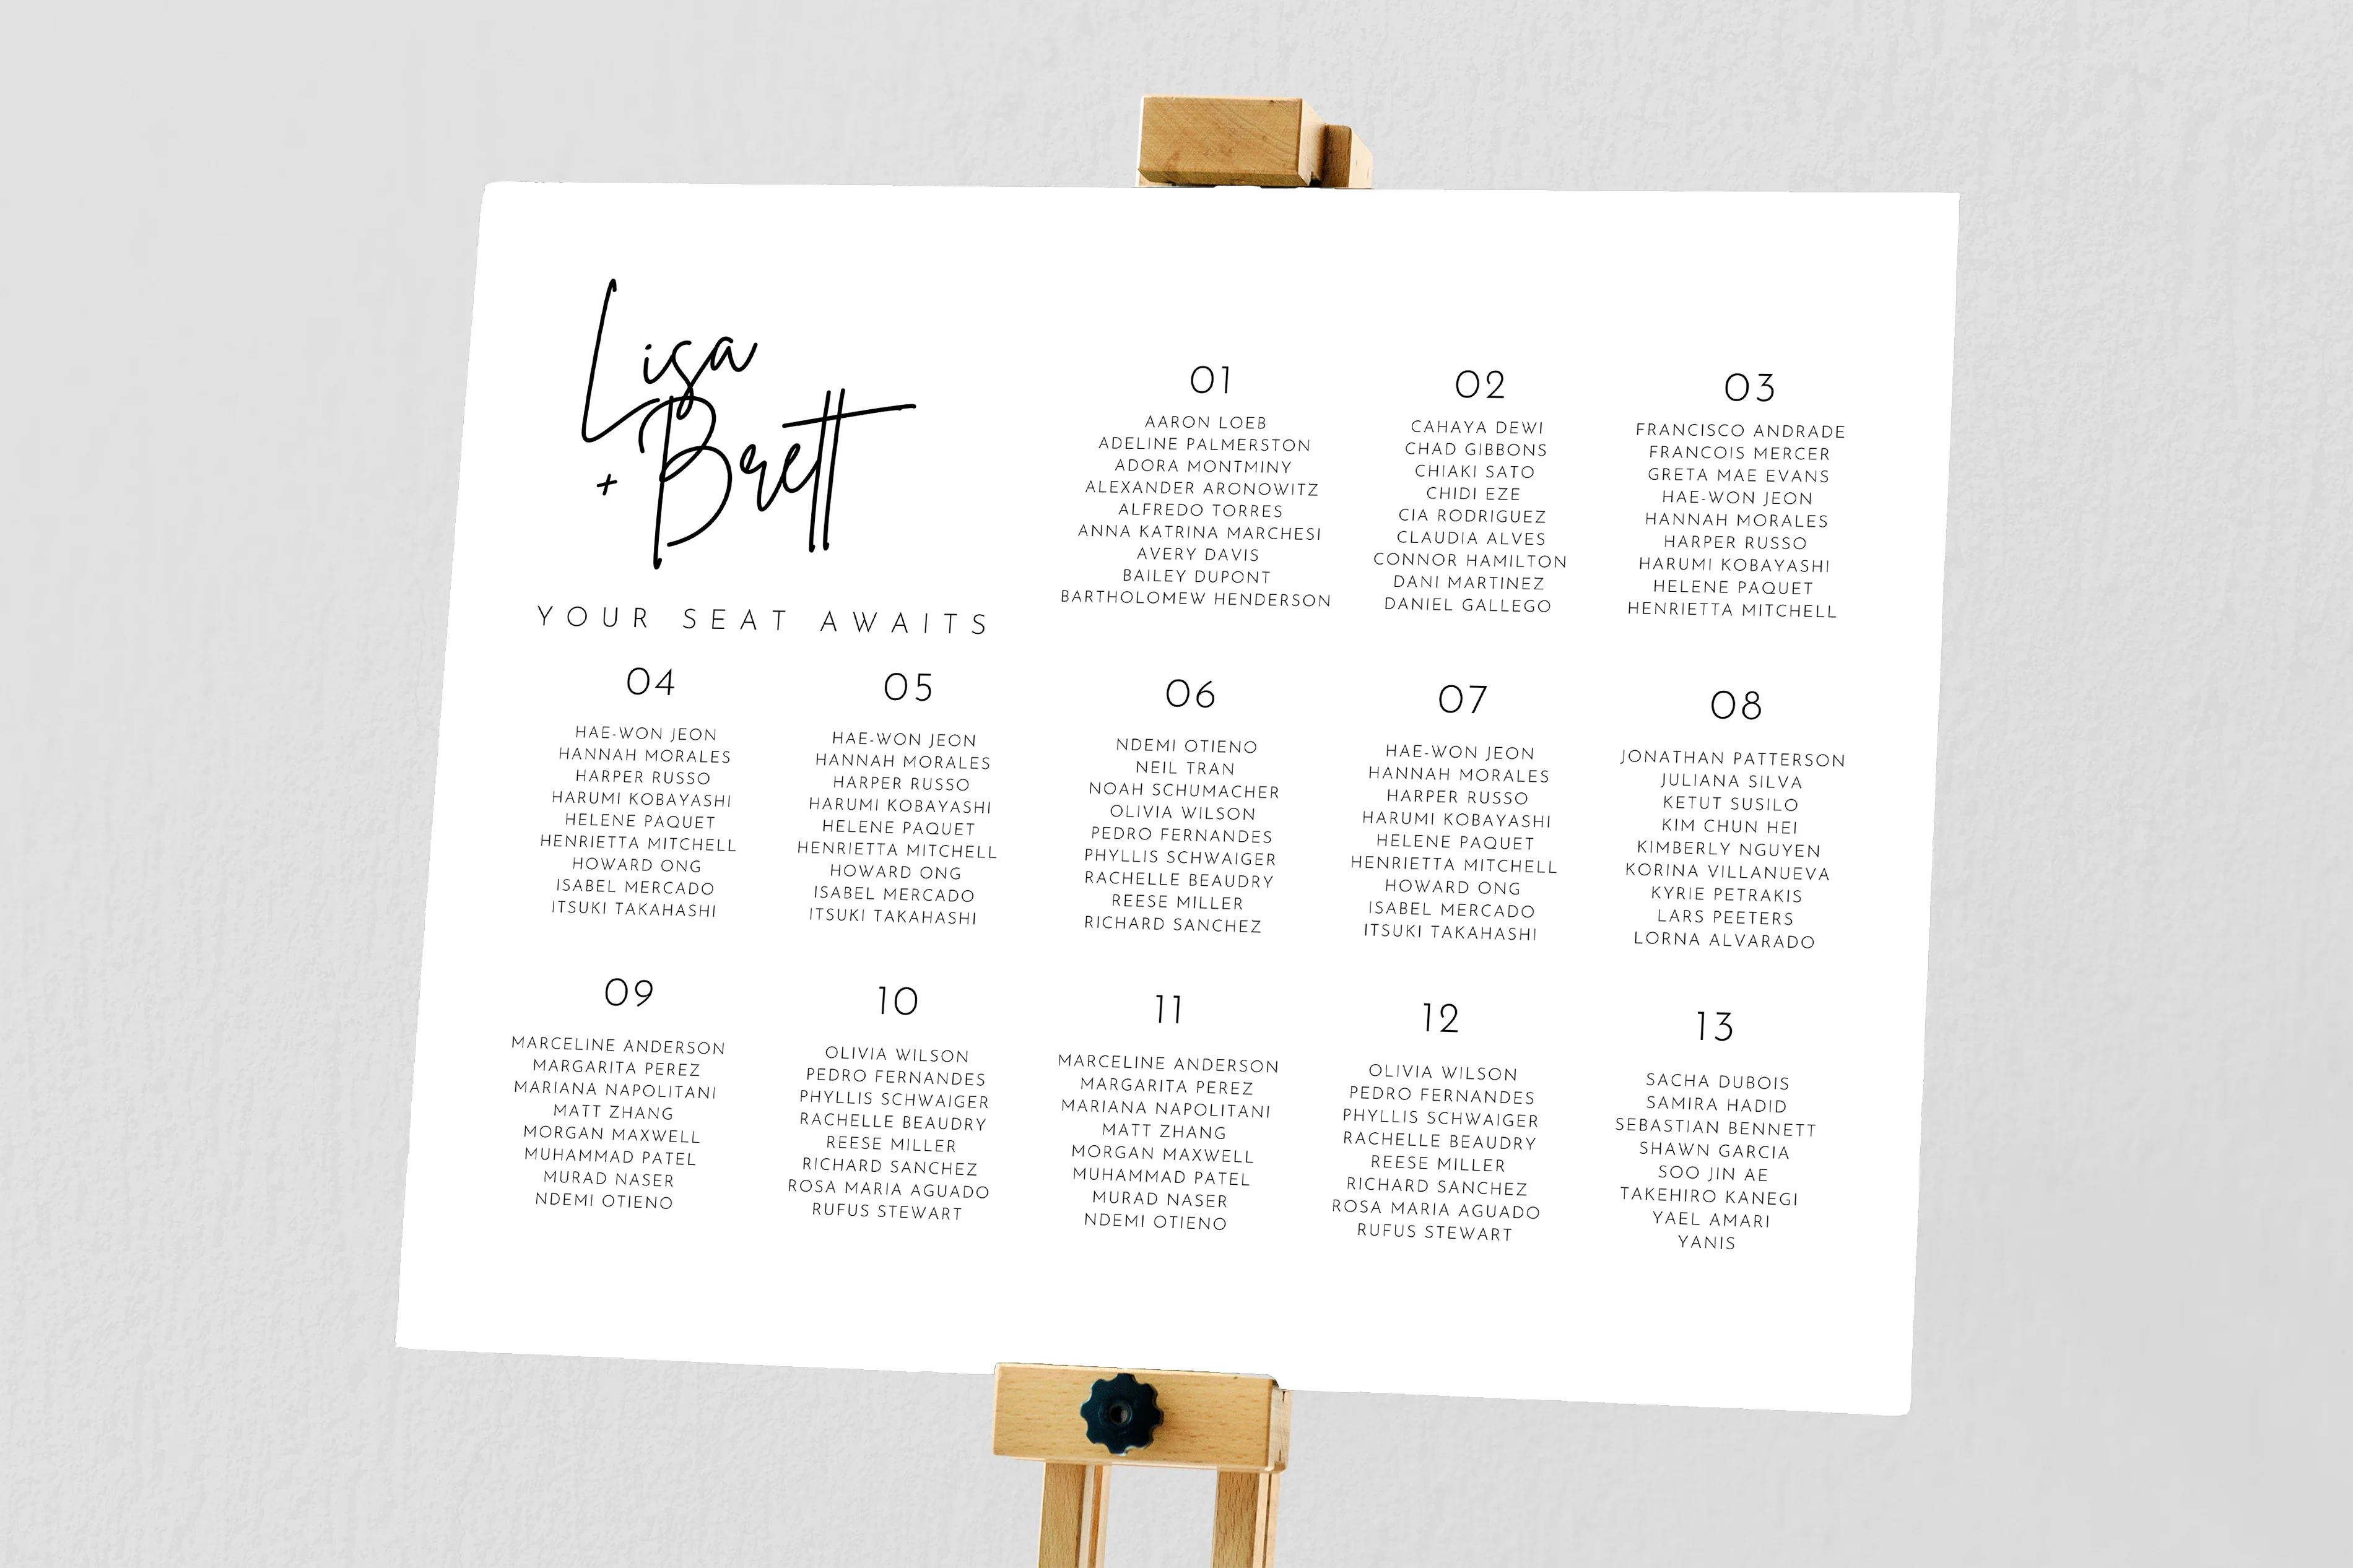 Lisa
+ Brett
YOUR SEAT AWAITS
01
AARON LOEB
ADELINE PALMERSTON
ADORA MONTMINY
ALEXANDER ARONOWITZ
ALFREDO TORRES
ANNA KATRINA MARCHESI
AVERY DAVIS
BAILEY DUPONT
BARTHOLOMEW HENDERSON
02
CAHAYA DEWI
CHAD GIBBONS
CHIAKI SATO
CHIDI EZE
CIA RODRIGUEZ
CLAUDIA ALVES
CONNOR HAMILTON
DANI MARTINEZ
DANIEL GALLEGO
03
FRANCISCO ANDRADE
FRANCOIS MERCER
GRETA MAE EVANS
HAE-WON JEON
HANNAH MORALES
HARPER RUSSO
HARUMI KOBAYASHI
HELENE PAQUET
HENRIETTA MITCHELL
04
HAE-WON JEON
HANNAH MORALES
HARPER RUSSO
HARUMI KOBAYASHI
HELENE PAQUET
HENRIETTA MITCHELL
HOWARD ONG
ISABEL MERCADO
ITSUKI TAKAHASHI
05
HAE-WON JEON
HANNAH MORALES
HARPER RUSSO
HARUMI KOBAYASHI
HELENE PAQUET
HENRIETTA MITCHELL
HOWARD ONG
ISABEL MERCADO
ITSUKI TAKAHASHI
06
NDEMI OTIENO
NEIL TRAN
NOAH SCHUMACHER
OLIVIA WILSON
PEDRO FERNANDES
PHYLLIS SCHWAIGER
RACHELLE BEAUDRY
REESE MILLER
RICHARD SANCHEZ
07
HAE-WON JEON
HANNAH MORALES
HARPER RUSSO
HARUMI KOBAYASHI
HELENE PAQUET
HENRIETTA MITCHELL
HOWARD ONG
ISABEL MERCADO
ITSUKI TAKAHASHI
08
JONATHAN PATTERSON
JULIANA SILVA
KETUT SUSILO
KIM CHUN HEI
KIMBERLY NGUYEN
KORINA VILLANUEVA
KYRIE PETRAKIS
LARS PEETERS
LORNA ALVARADO
09
MARCELINE ANDERSON
MARGARITA PEREZ
MARIANA NAPOLITANI
MATT ZHANG
MORGAN MAXWELL
MUHAMMAD PATEL
MURAD NASER
NDEMI OTIENO
10
OLIVIA WILSON
PEDRO FERNANDES
PHYLLIS SCHWAIGER
RACHELLE BEAUDRY
REESE MILLER
RICHARD SANCHEZ
ROSA MARIA AGUADO
RUFUS STEWART
11
MARCELINE ANDERSON
MARGARITA PEREZ
MARIANA NAPOLITANI
MATT ZHANG
MORGAN MAXWELL
MUHAMMAD PATEL
MURAD NASER
NDEMI OTIENO
12
OLIVIA WILSON
PEDRO FERNANDES
PHYLLIS SCHWAIGER
RACHELLE BEAUDRY
REESE MILLER
RICHARD SANCHEZ
ROSA MARIA AGUADO
RUFUS STEWART
13
SACHA DUBOIS
SAMIRA HADID
SEBASTIAN BENNETT
SHAWN GARCIA
SOO JIN AE
TAKEHIRO KANEGI
YAEL AMARI
YANIS